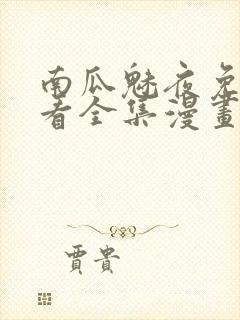 南瓜魅夜免
看全集漫畫
賈貴